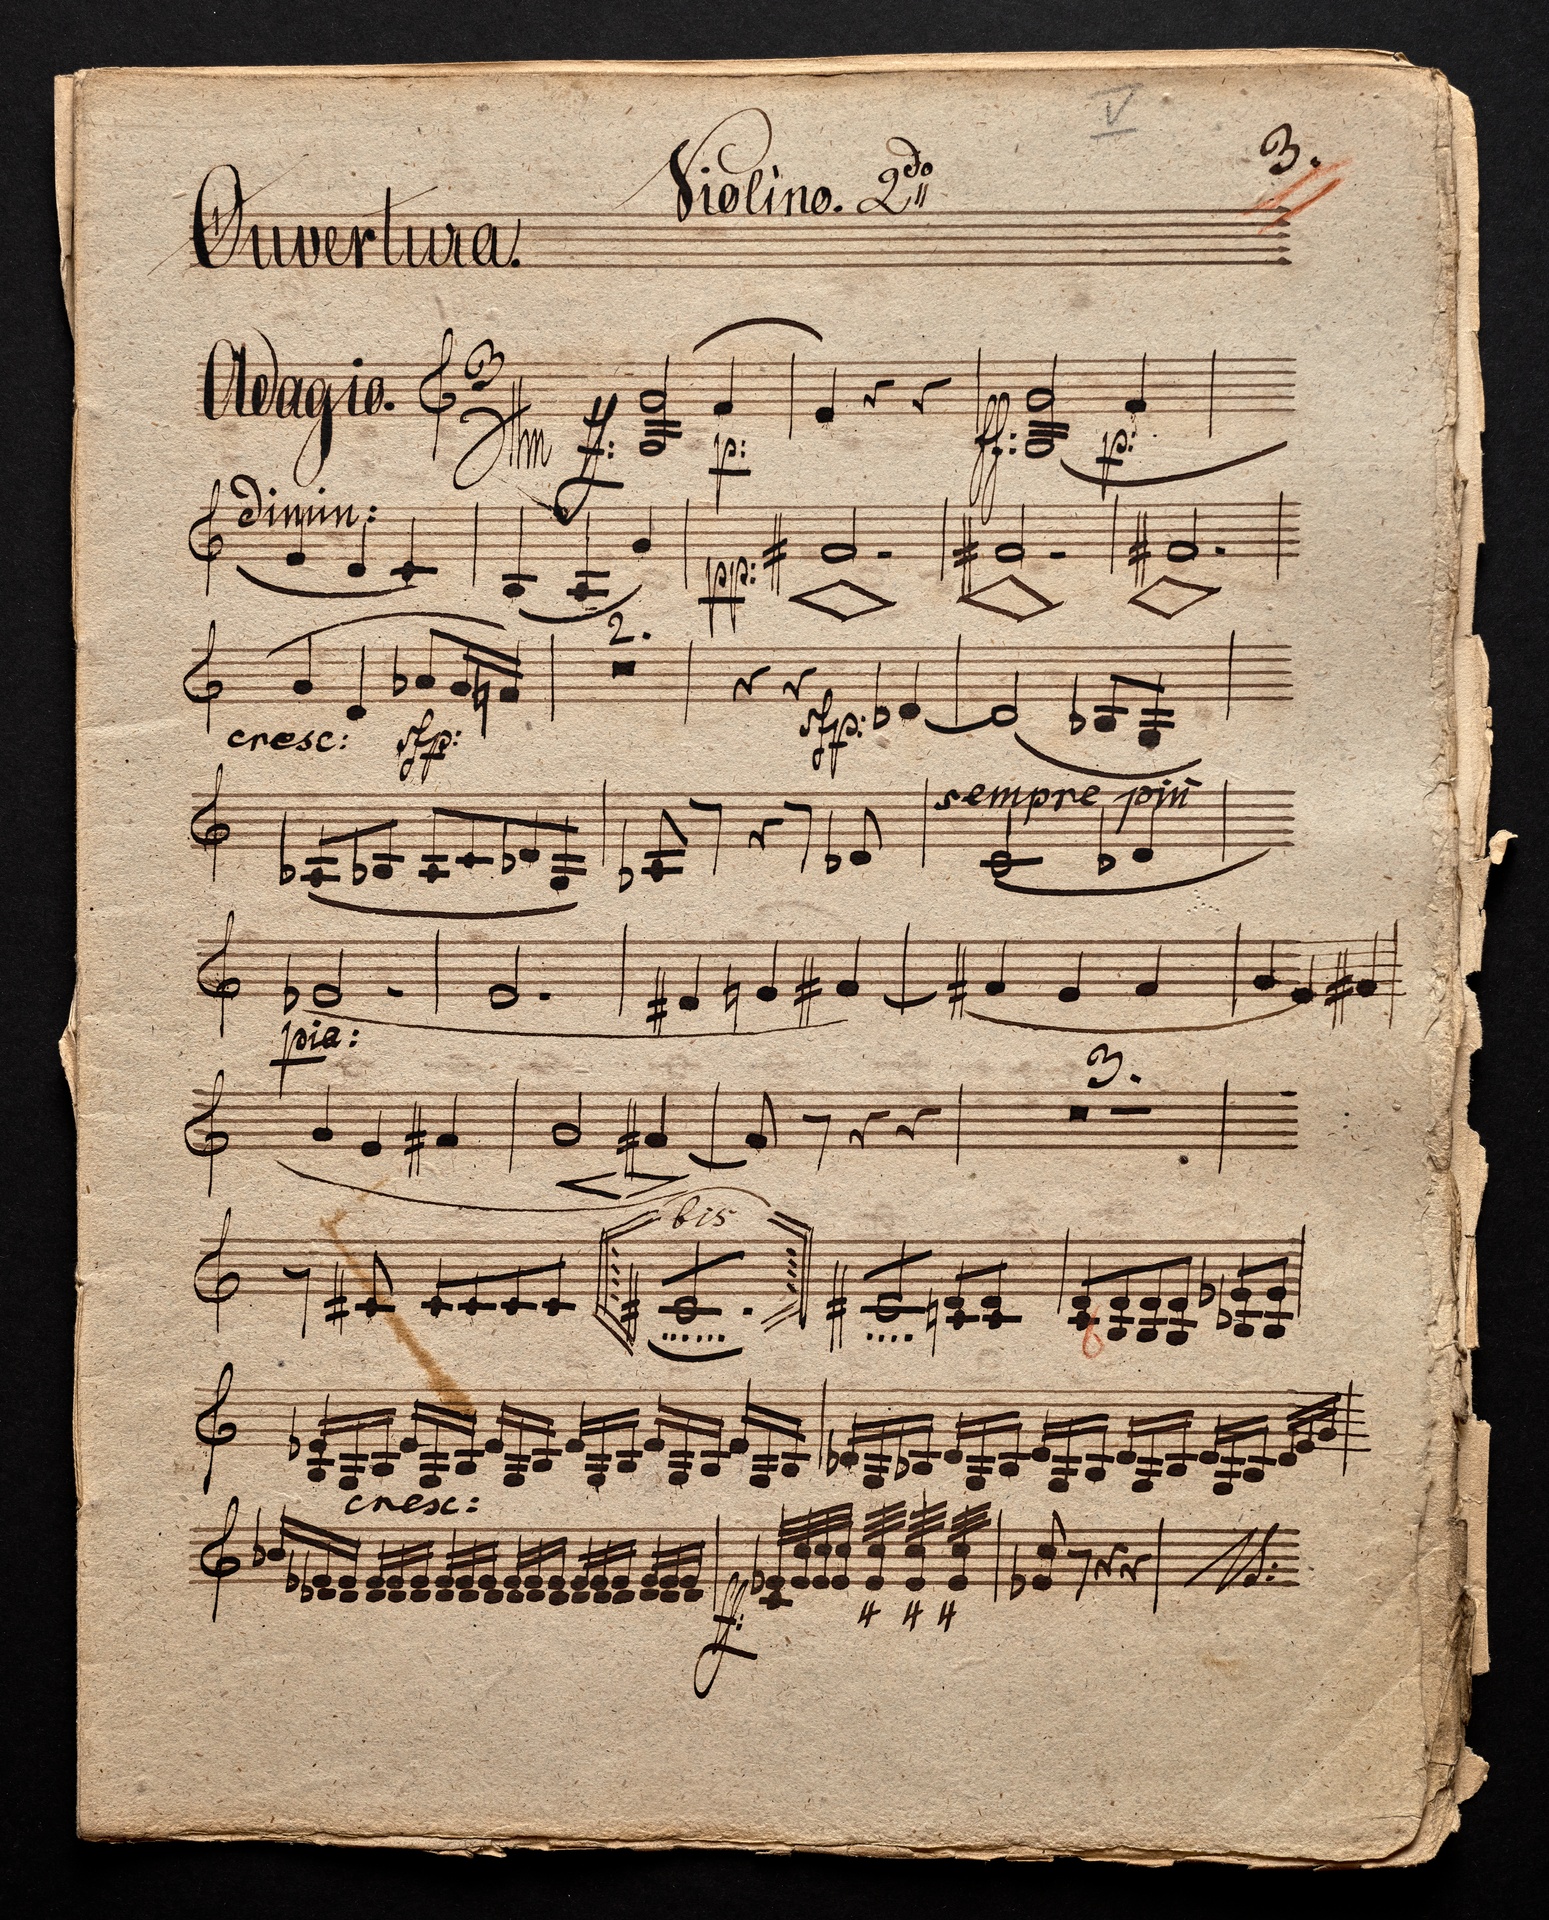 V
3.
Violino. 2do
Ouvertura.
Adagio. 3 ff: p: ff: p:
dimin: pp:
2.
cresc: sfp: sfp:
sempre più
pia:
3.
bis
cresc:
ff: 4 4 4 VS: